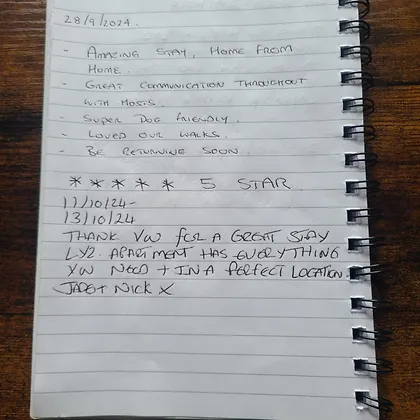 28/9/2024.
- AMAZING STAY, HOME FROM
HOME.
- GREAT COMMUNICATION THROUGHOUT
WITH HOSTS.
- SUPER DOG FRIENDLY.
- LOVED OUR WALKS.
- BE RETURNING SOON.
* * * * * 5 STAR.
11/10/24-
13/10/24
THANK YOU FOR A GREAT STAY
APARTMENT HAS EVERYTHING
YOU NEED + IN A PERFECT LOCATION
+ NICK X